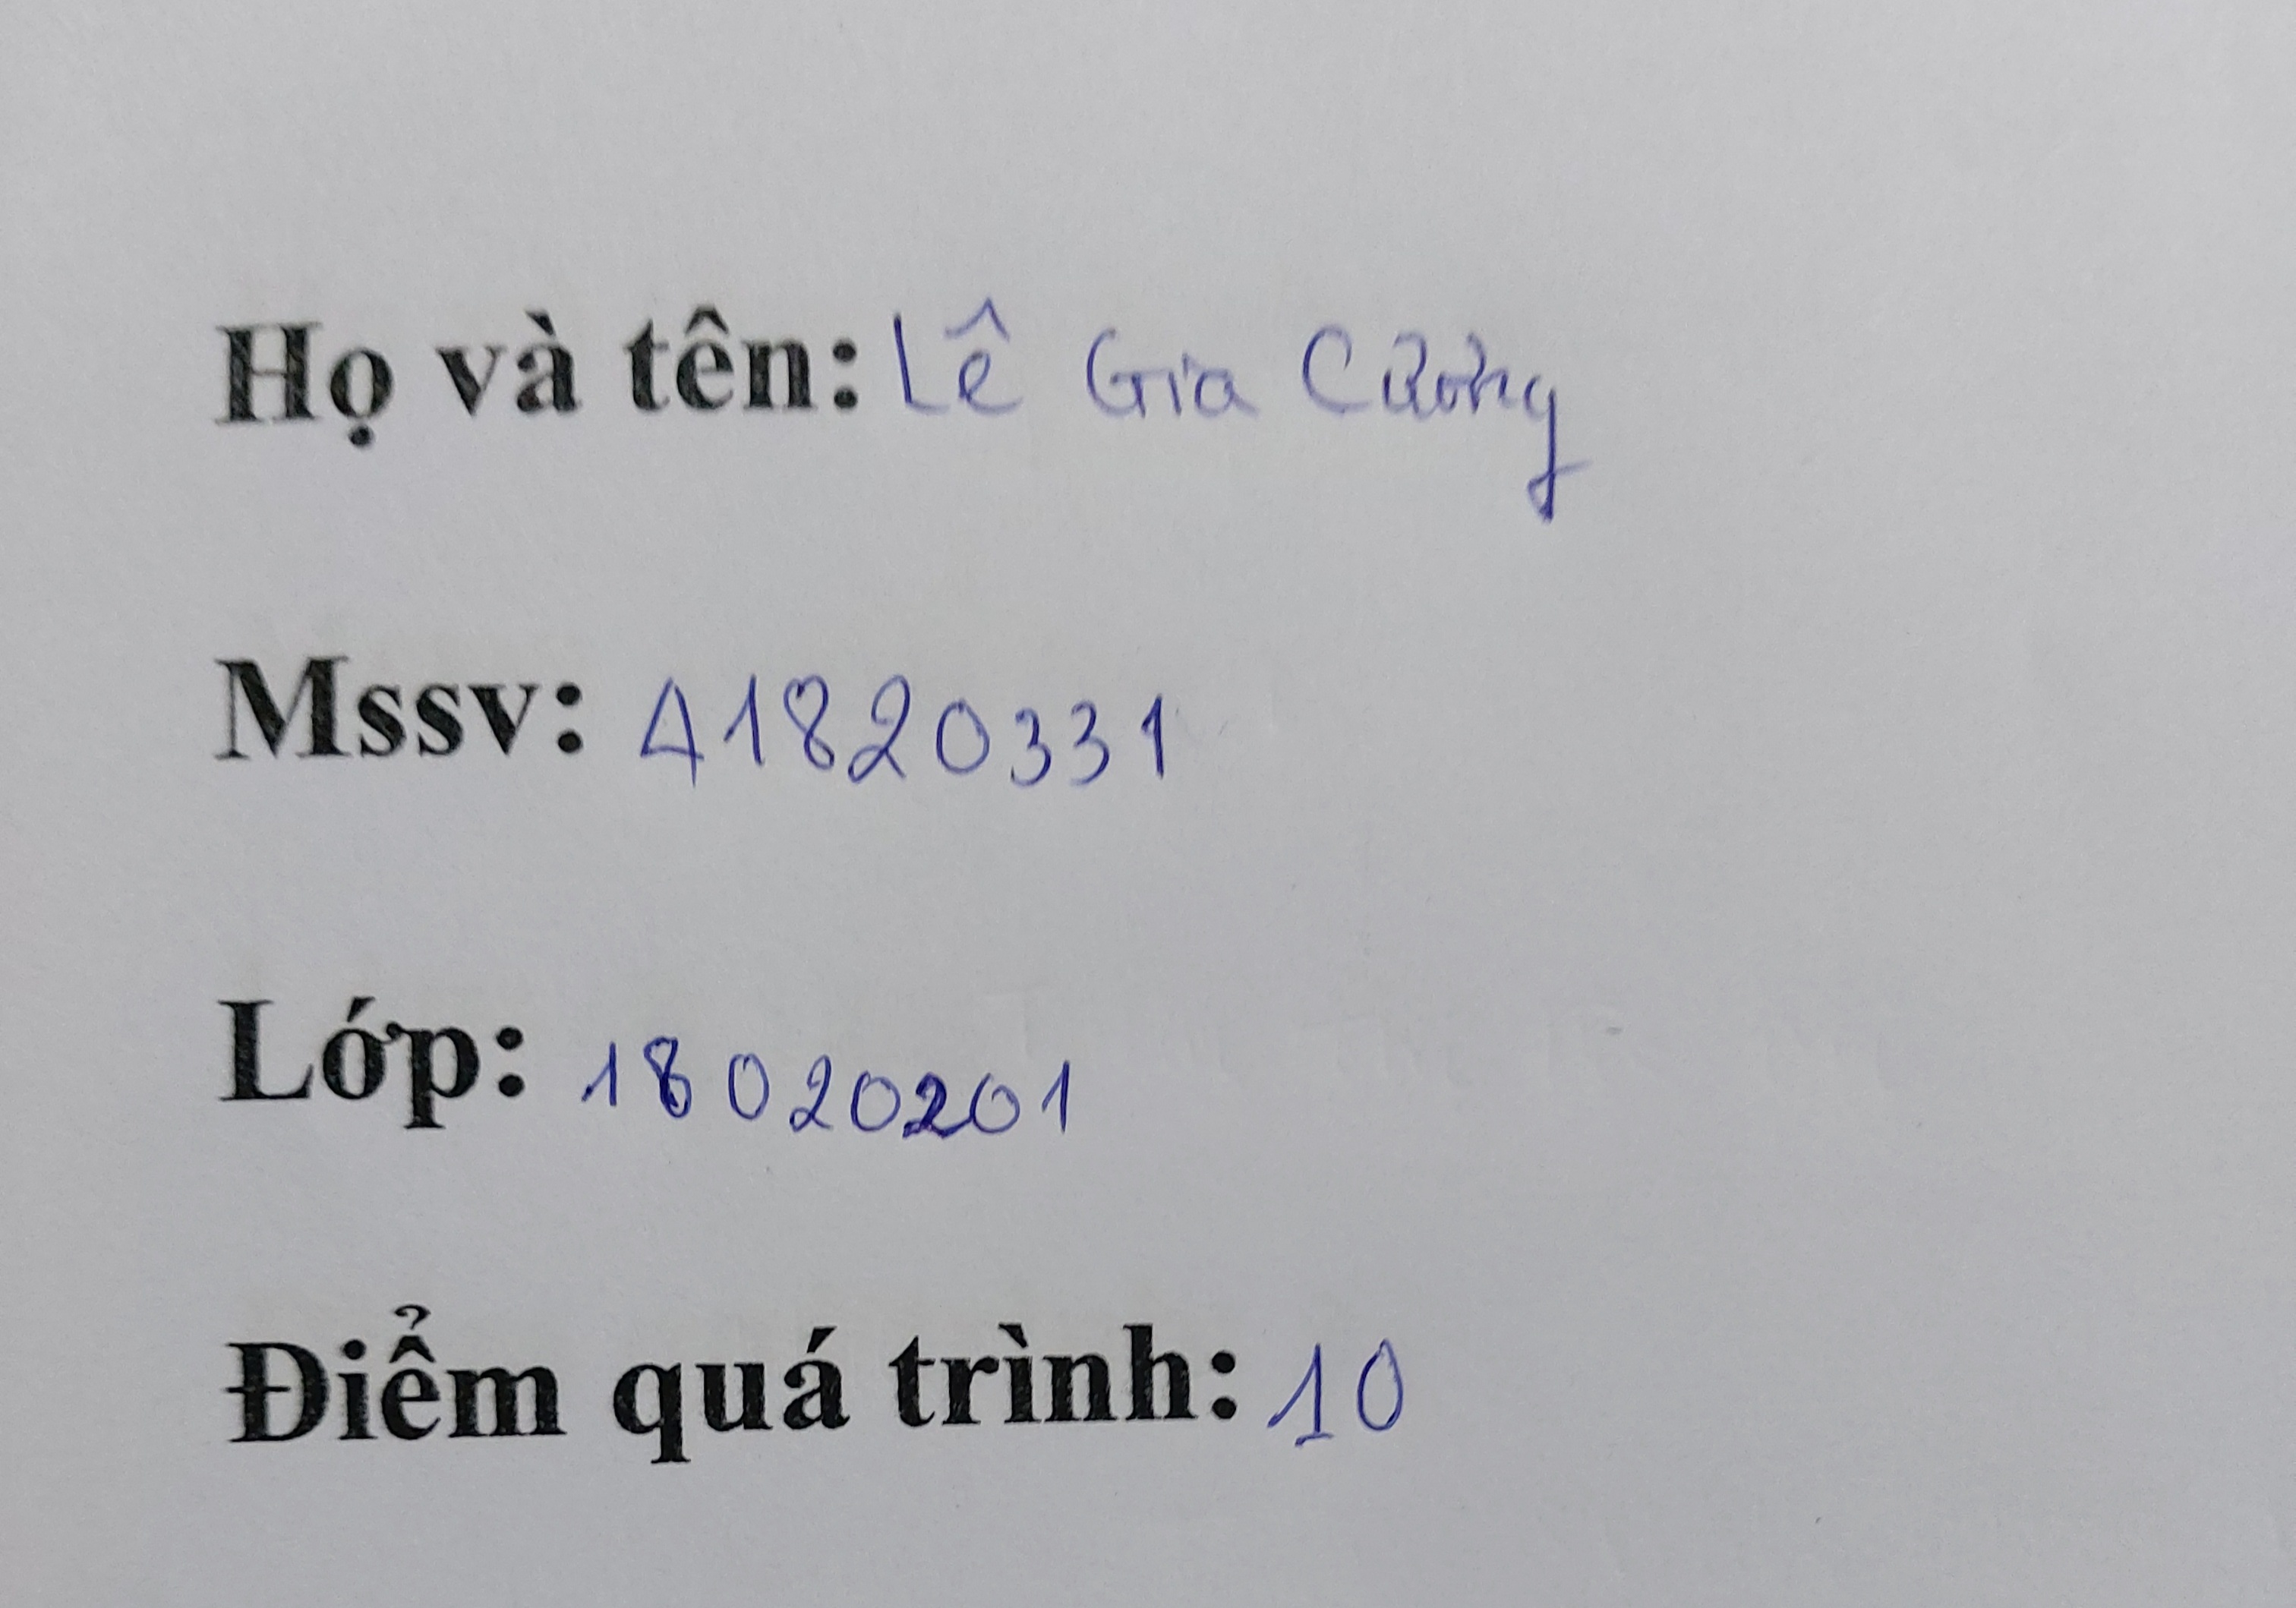 Họ và tên: Lê Gia Cường
Mssv: A1820331
Lớp: 18020201
Điểm quá trình: 10